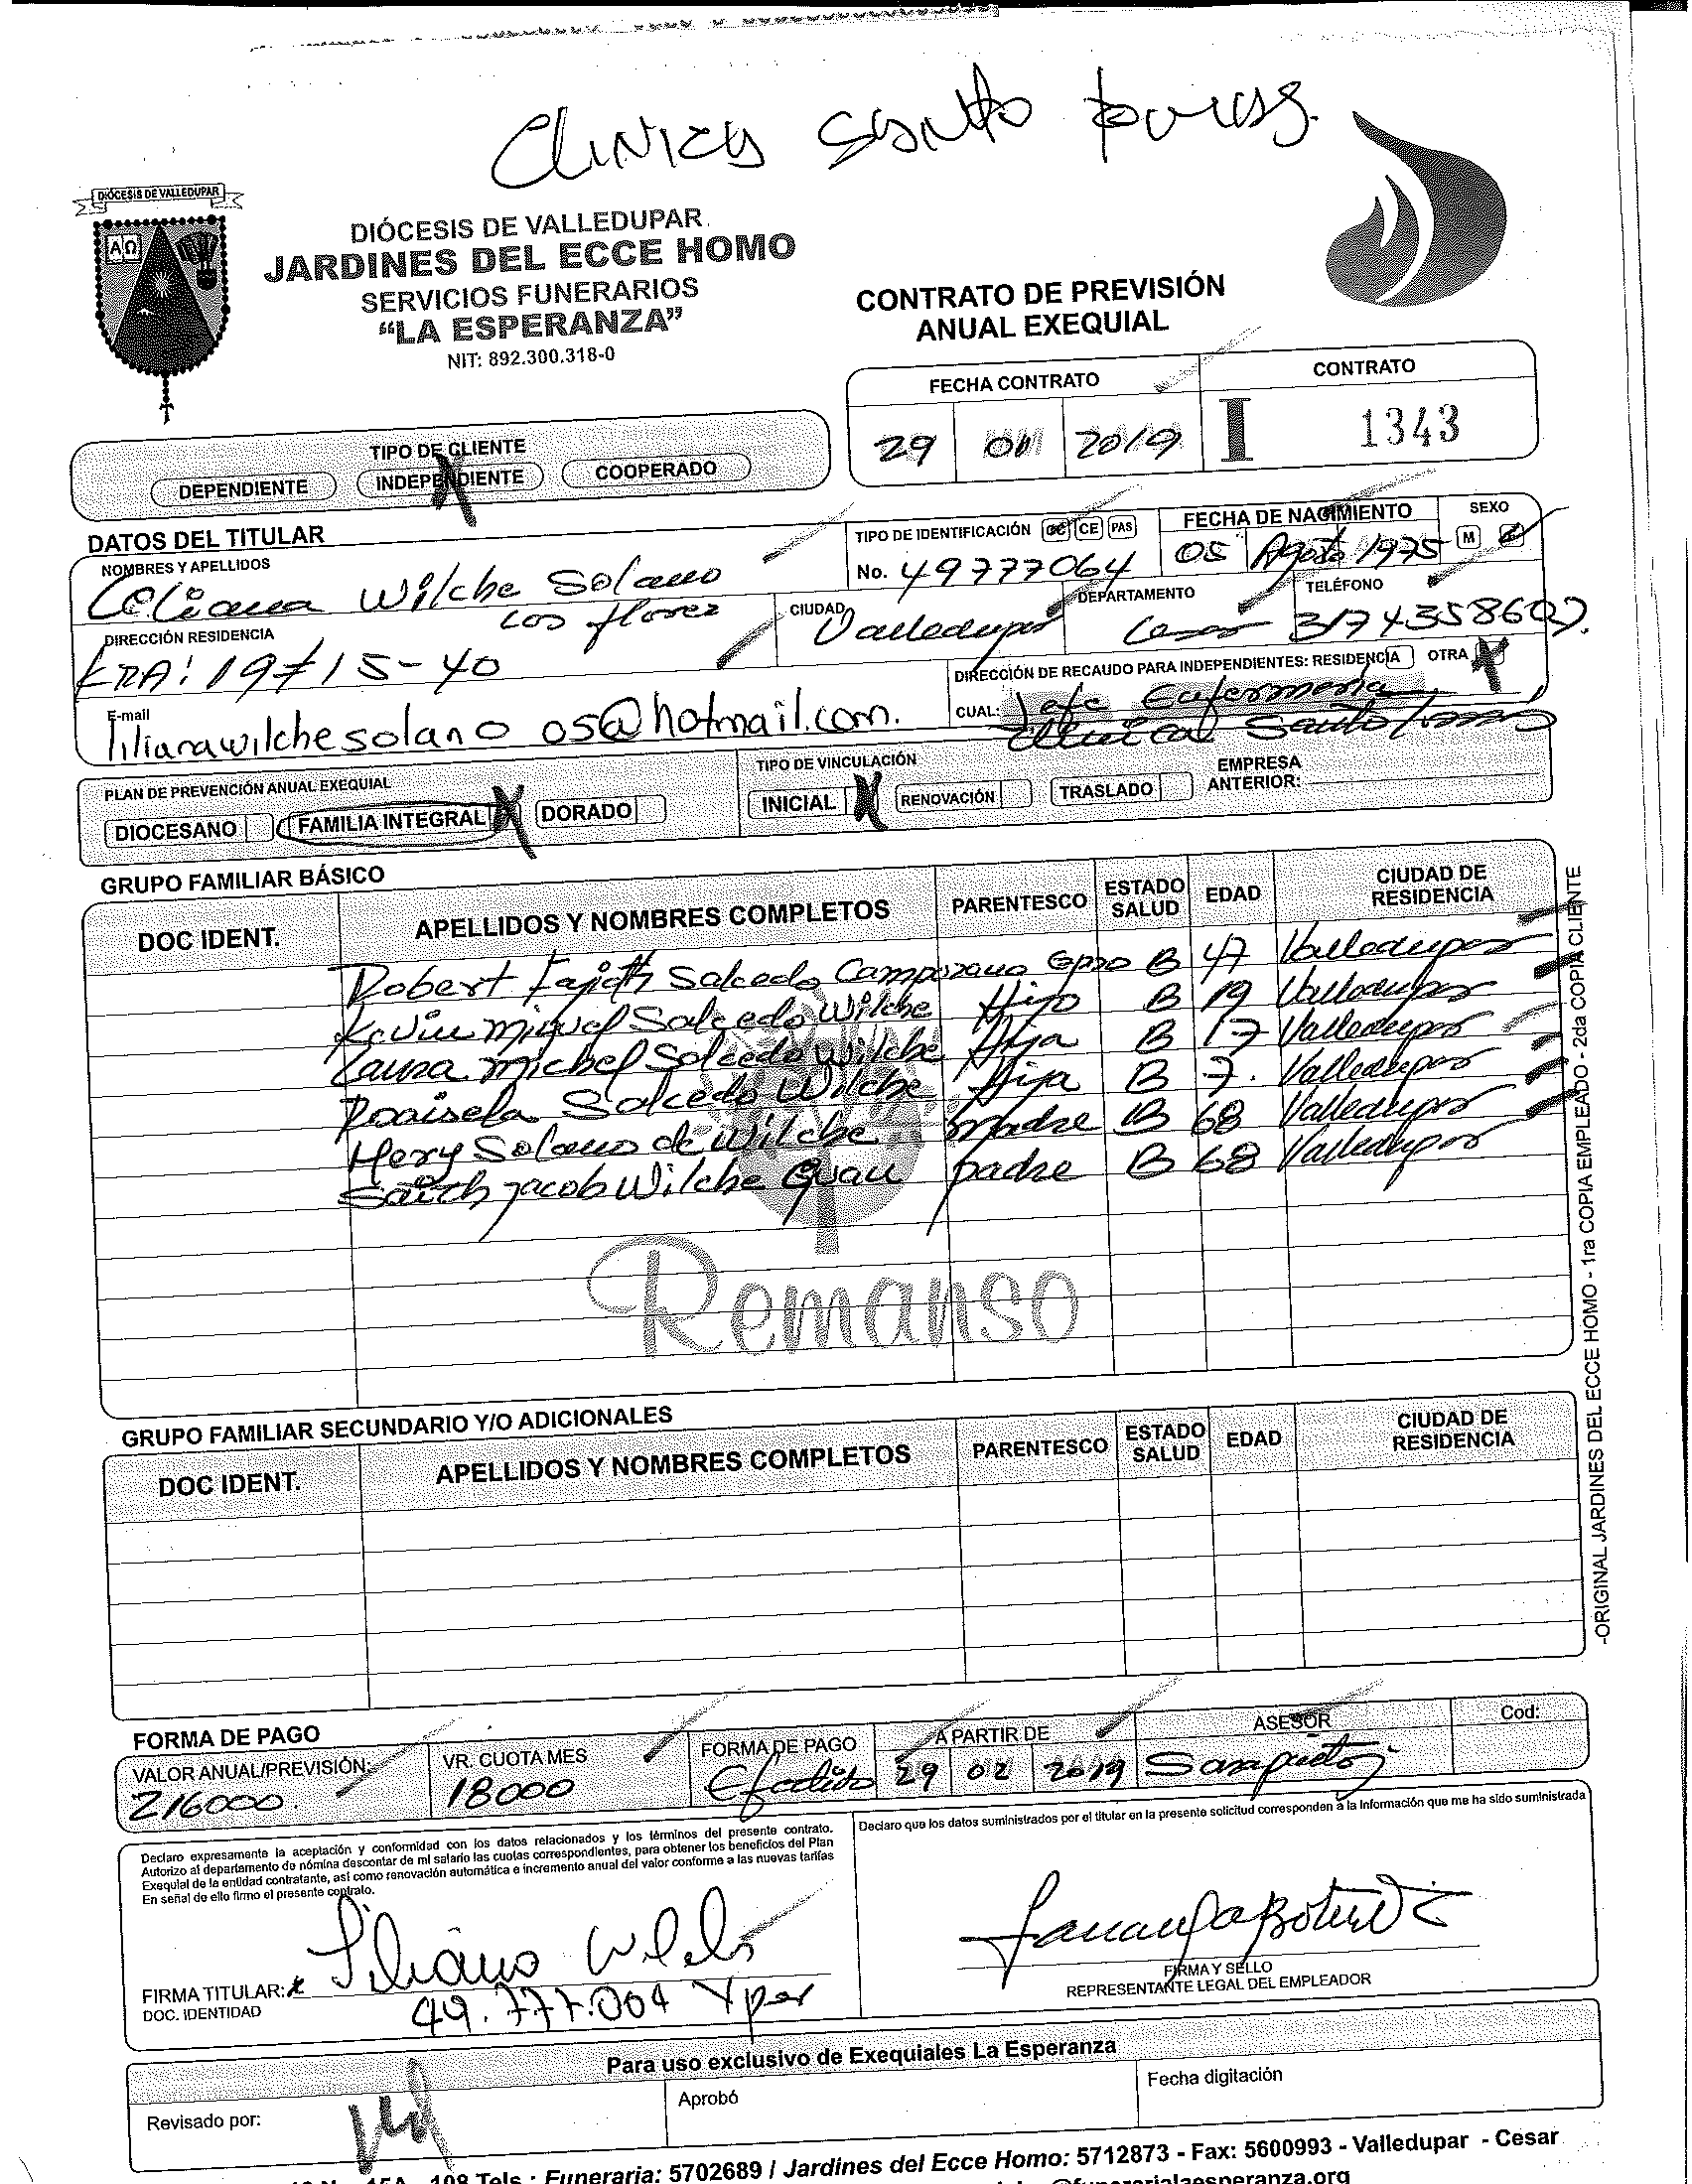 Clinica Santo tomas.
DIÓCESIS DE VALLEDUPAR
DIÓCESIS DE VALLEDUPAR
JARDINES DEL ECCE HOMO
SERVICIOS FUNERARIOS
“LA ESPERANZA”
NIT: 892.300.318-0
CONTRATO DE PREVISIÓN
ANUAL EXEQUIAL
FECHA CONTRATO CONTRATO
29 2019 I 1343
TIPO DE CLIENTE
DEPENDIENTE INDEPENDIENTE X COOPERADO
DATOS DEL TITULAR
TIPO DE IDENTIFICACIÓN CC CE PAS FECHA DE NACIMIENTO SEXO
NOMBRES Y APELLIDOS
Liliana Wilche Solano No. 49777064 05 Agosto 1975 M
DIRECCIÓN RESIDENCIA Los flores CIUDAD Valledupar DEPARTAMENTO Cesar TELÉFONO 3174358607
KRA: 19 # 15-40
DIRECCIÓN DE RECAUDO PARA INDEPENDIENTES: RESIDENCIA OTRA X
E-mail lilianawilchesolano 05@hotmail.com.
CUAL: Jefe Enfermeria
Clinical Santo Tomas
PLAN DE PREVENCIÓN ANUAL EXEQUIAL TIPO DE VINCULACIÓN EMPRESA ANTERIOR:
DIOCESANO FAMILIA INTEGRAL X DORADO INICIAL X RENOVACIÓN TRASLADO
GRUPO FAMILIAR BÁSICO
DOC IDENT. APELLIDOS Y NOMBRES COMPLETOS PARENTESCO ESTADO SALUD EDAD CIUDAD DE RESIDENCIA
Robert Fajith Salcedo Camporano Epso B 47 Valledupar
Kevin Miguel Salcedo Wilche Hijo B 19 Valledupar
Laura Michel Salcedo Wilche Hija B 17 Valledupar
Salcedo Wilche Hija B 7. Valledupar
Mery Solano de Wilche Madre B 68 Valledupar
Saith Jacob Wilche padre B 68 Valledupar
Remanso
GRUPO FAMILIAR SECUNDARIO Y/O ADICIONALES
DOC IDENT. APELLIDOS Y NOMBRES COMPLETOS PARENTESCO ESTADO SALUD EDAD CIUDAD DE RESIDENCIA
-ORIGINAL JARDINES DEL ECCE HOMO - 1ra COPIA EMPLEADO - 2da COPIA CLIENTE
FORMA DE PAGO
VALOR ANUAL/PREVISIÓN: VR. CUOTA MES FORMA DE PAGO A PARTIR DE ASESOR Cod:
216000 18000 29 02 2019
Declaro expresamente la aceptación y conformidad con los datos relacionados y los términos del presente contrato.
Autorizo al departamento de nómina descontar de mi salario las cuotas correspondientes, para obtener los beneficios del Plan
Exequial de la entidad contratante, así como renovación automática e incremento anual del valor conforme a las nuevas tarifas
En señal de ello firmo el presente contrato.
Declaro que los datos suministrados por el titular en la presente solicitud corresponden a la Información que me ha sido suministrada
FIRMA TITULAR: Liliana
DOC. IDENTIDAD 49.777.064
FIRMA Y SELLO
REPRESENTANTE LEGAL DEL EMPLEADOR
Para uso exclusivo de Exequiales La Esperanza
Revisado por: Aprobó Fecha digitación
15A - 108 Tels.: Funeraria: 5702689 / Jardines del Ecce Homo: 5712873 - Fax: 5600993 - Valledupar - Cesar
@funerarialaesperanza.org